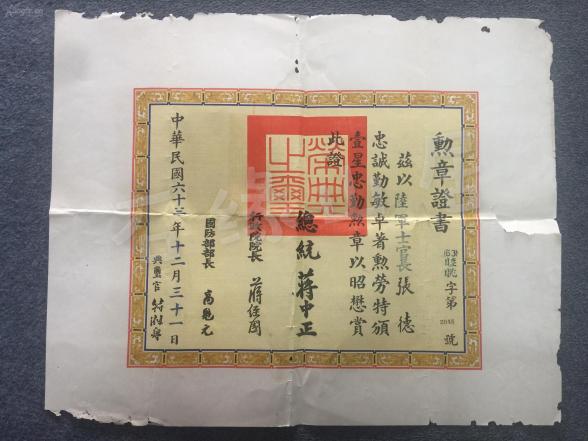 勲章證書
字第2045號
茲以陸軍士官長張德
忠誠勤敏卓著勲勞特頒
壹星忠勤勲章以昭懋賞
此證
榮典之璽
總統 蔣中正
行政院院長 蔣經國
國防部部長 高魁元
中華民國六十三年十二月三十一日
典璽官